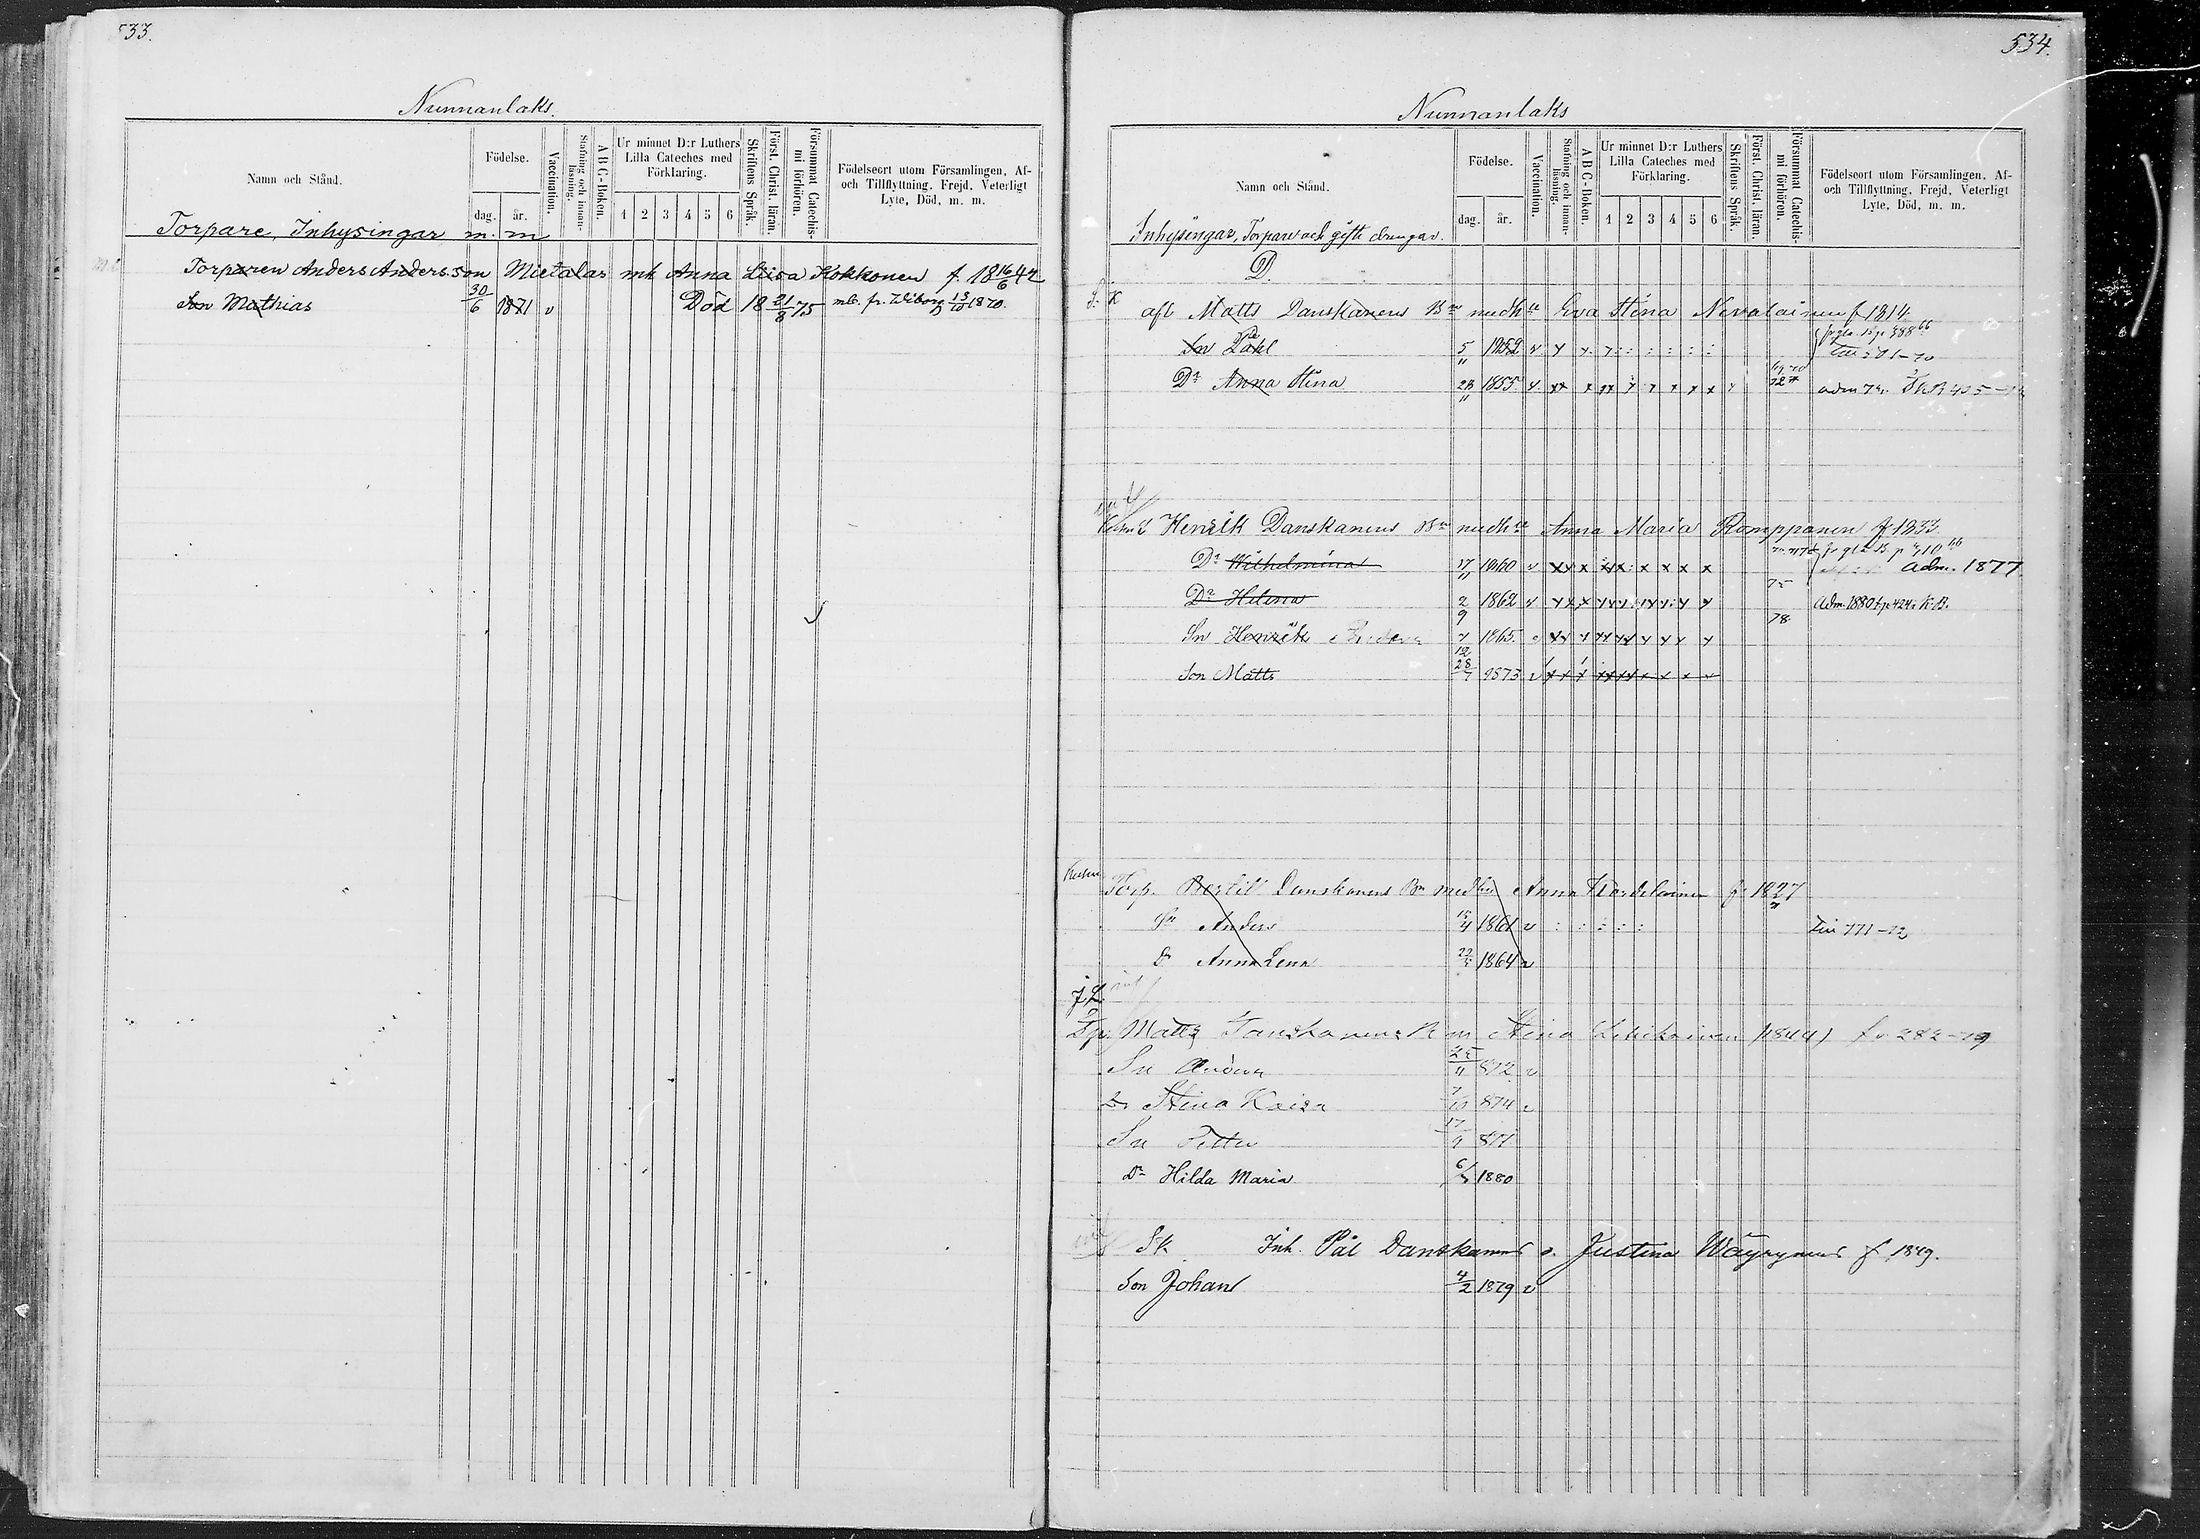 533.
Nunnanlaks.
Namn och Stånd.
Födelse.
dag.
år.
Vaccination.
Stafning och innan-läsning.
A B C-Boken.
Ur minnet D:r Luthers Lilla Cateches med Förklaring.
1 2 3 4 5 6
Skriftens Språk.
Först. Christ. läran.
Försummat Catechis-mi förhören.
Födelseort utom Församlingen, Af- och Tillflyttning, Frejd, Veterligt Lyte, Död, m. m.
Torpare, Inhysingar m. m
Torparen Anders Andersson Mietalas mh Anna Liisa Kokkonen f. 18 16/6 42
Son Mathias 30/6 1871 v Död 18 21/8 75 mb. fr. Wiborg 13/10 1870.
534.
Nunnanlaks
Namn och Stånd.
Födelse.
dag.
år.
Vaccination.
Stafning och innan-läsning.
A B C-Boken.
Ur minnet D:r Luthers Lilla Cateches med Förklaring.
1 2 3 4 5 6
Skriftens Språk.
Först. Christ. läran.
Försummat Catechis-mi förhören.
Födelseort utom Församlingen, Af- och Tillflyttning, Frejd, Veterligt Lyte, Död, m. m.
Inhysingar, Torpare och gifte drengar.
D.
afl Matts Danskanens Bn med h Eva Stina Nevalainen f 1814
Sn 5/11 1852 v
Dr Anna Stina 28/11 1855 v
Henrik Danskanens Bn med h Anna Maria Romppanen f 1833
Dr Wilhelmina 17/11 1860 v adm. 1877
Dr Helena 2/9 1862 v 78 Adm. 1880
Sn Henrik 1865
Son Matts 28/7 1873 v
Torp. Bertil Danskanens Bn med hu Anna f 1827
Sn Anders 1861 v 771-72
Dr Anna Lena 1864 v
Matts Tanskanens Stina (1844) 282-79
Sn 872 v
Dr Stina Kaisa 7/10 874 v
Sn Petter 17/9 877
Dr Hilda Maria 1880
Sk Inh. Pål Danskanens o. Justina Wäyrynens f 1849.
Son Johan 4/2 1879 v